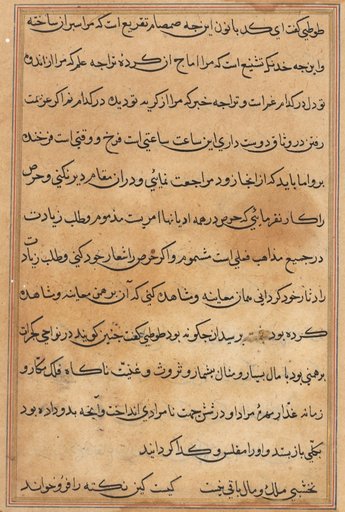 طوطی گفت ای کدبانو این چه صمصام تقریع است که مرا سپر آن ساخته
و این چه خدنگ تشنیع است که مرا آماج آن کرده تو چه علم که مرا از اندوه
تو دل در کدام غم است و تو چه خبر که مرا از گریه تو دیده در کدام نم اگر عزیمت
رفتن در وثاق دوست داری این ساعت ساعتی است فرخ و وقتی است فرخنده
برو اما باید که از آنجا زود مراجعت نمائی و در آن مقام دیر نکنی و حرص
را کار نفرمائی که حرص در همه ادیانها امریست مذموم و طلب زیادت
در جمیع مذاهب فعلی است مشموم و اگر حرص را شعار خود کنی و طلب زیادت
را دثار خود گردانی همان معاینه و مشاهده کنی که آن برهمن معاینه و مشاهده
کرده بود پرسید آن چگونه بود طوطی گفت چنین گویند در نواحی گجرات
برهمنی بود با مال بسیار و منال بیشمار و ثروت و غنیت ناگاه فلک مکار و
زمانه غدار مهره مراد او در ششدر نامرادی انداخت و آنچه بدو داده بود
بکلی باز ستد و او را مفلس و گدا گردانید
نخشبی ملک و مال باقی نیست کیست کین نکته را فرو خواند